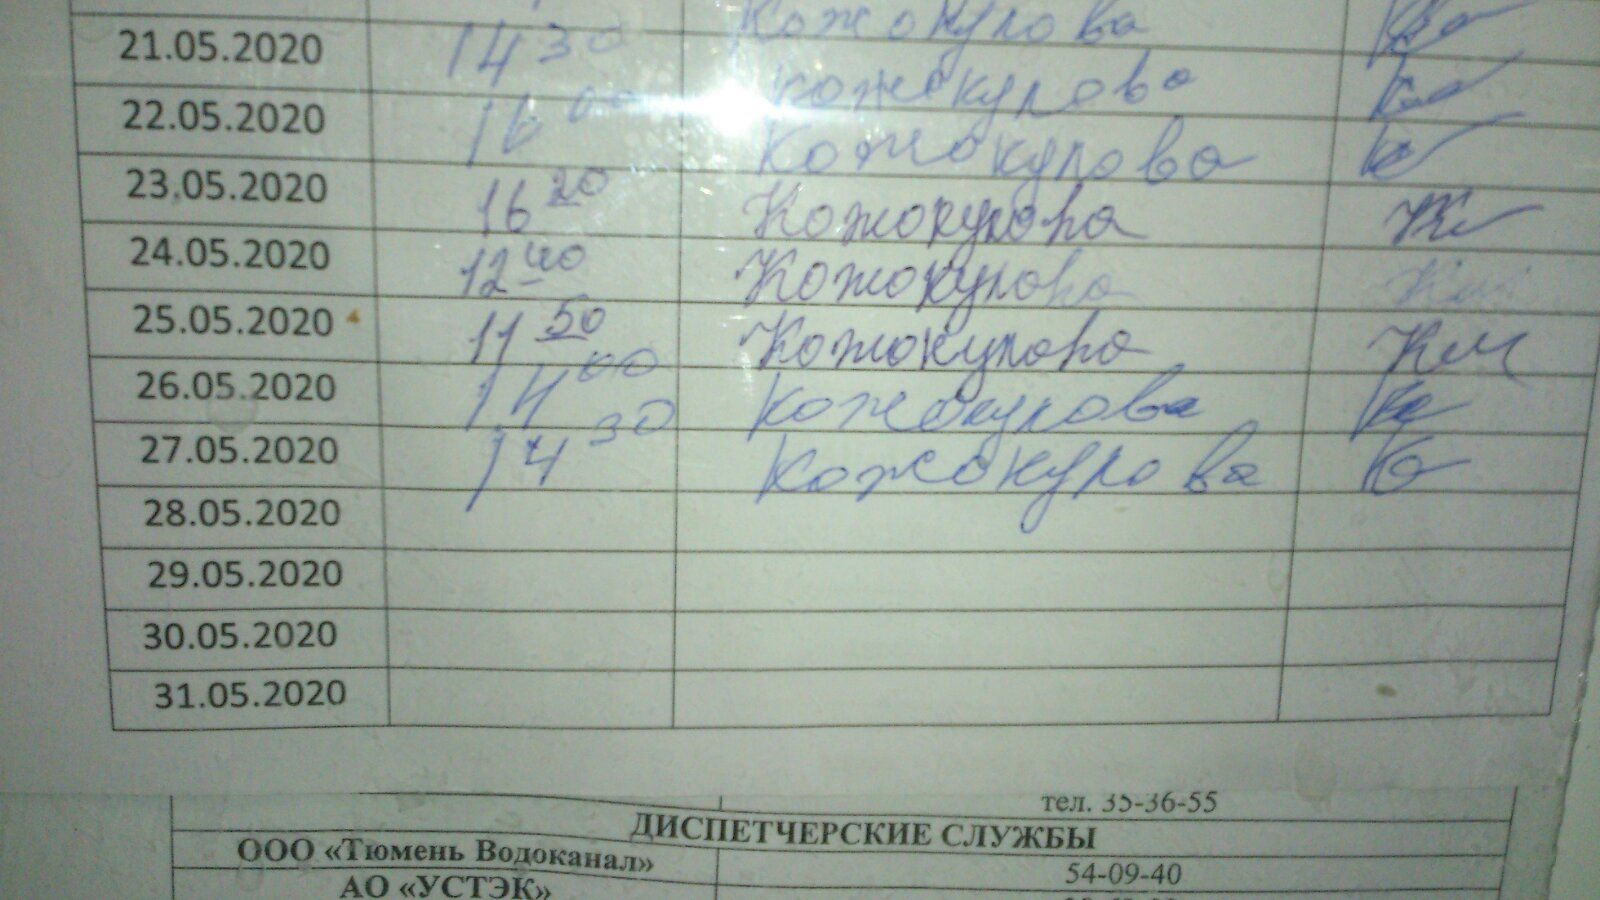 21.05.2020 14 30 Кожокулова
22.05.2020 16 00 Кожокулова
23.05.2020 16 20 Кожокулова
24.05.2020 12 40 Кожокулова
25.05.2020 11 50 Кожокулова
26.05.2020 14 00 Кожокулова
27.05.2020 14 30 Кожокулова
28.05.2020
29.05.2020
30.05.2020
31.05.2020
тел. 35-36-55
ДИСПЕТЧЕРСКИЕ СЛУЖБЫ
ООО «Тюмень Водоканал» 54-09-40
АО «УСТЭК»